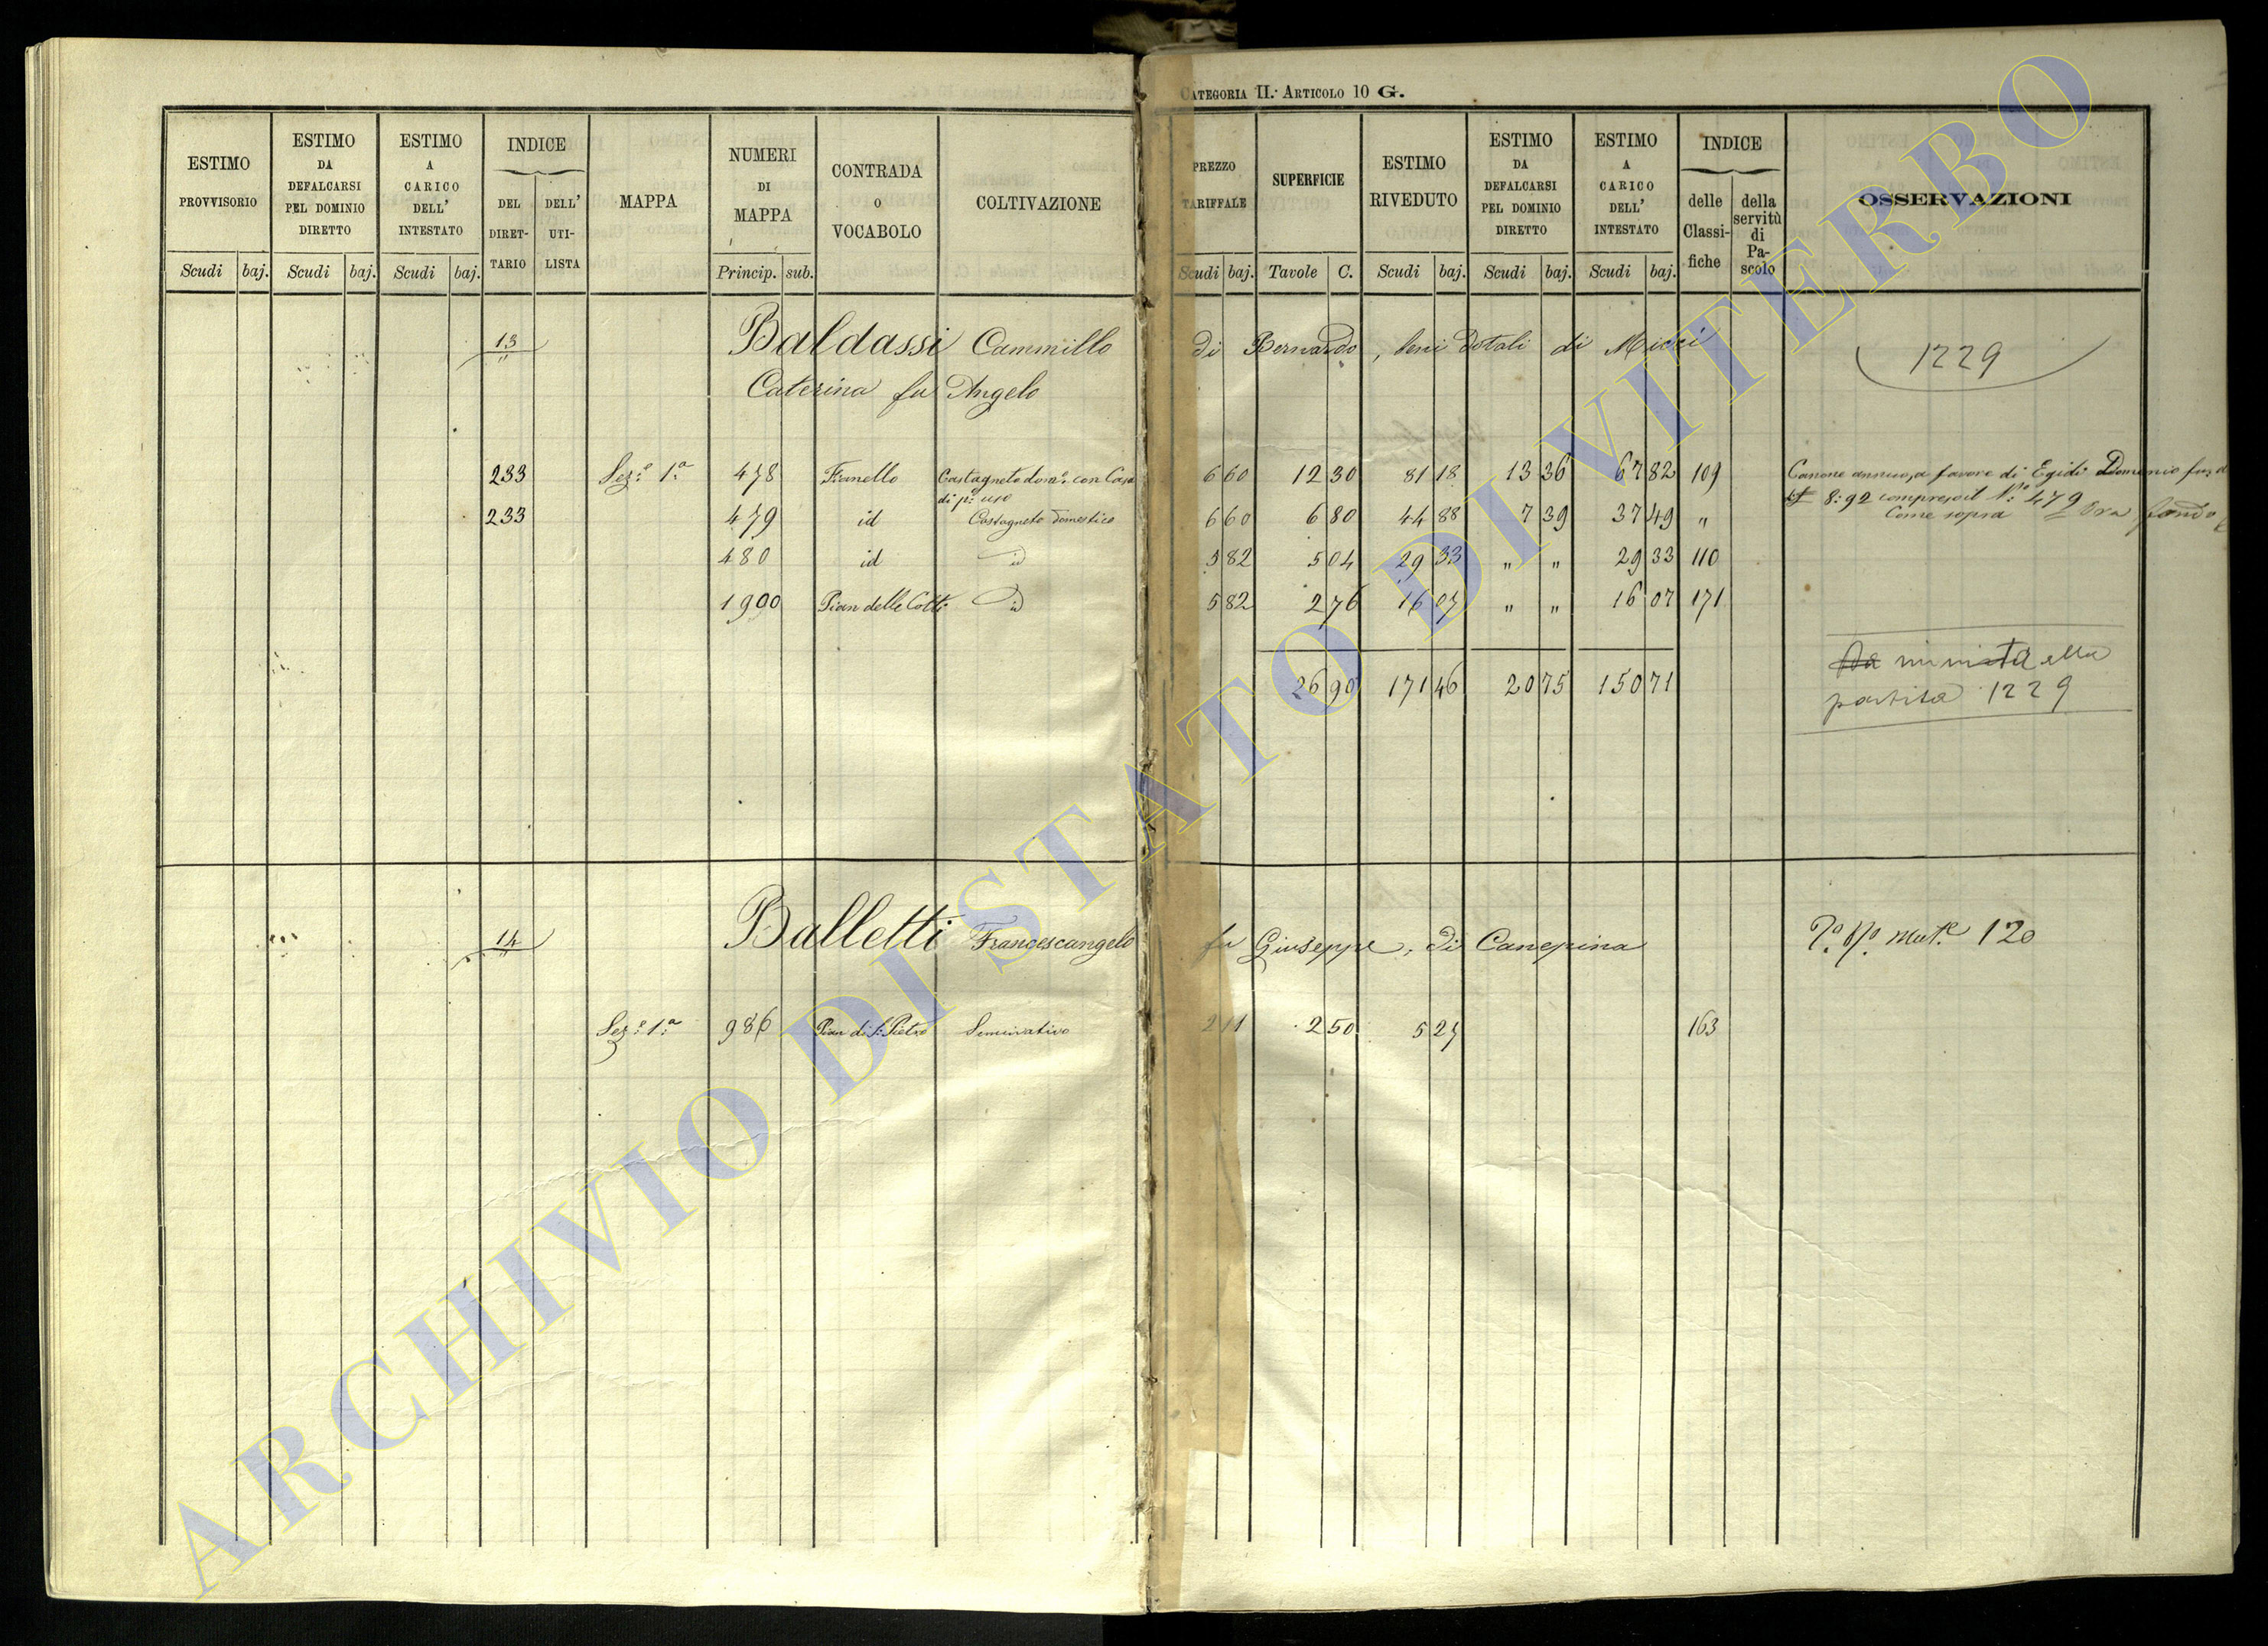 CATEGORIA II.ª ARTICOLO 10 G.
ESTIMO PROVVISORIO Scudi baj.
ESTIMO DA DEFALCARSI PEL DOMINIO DIRETTO Scudi baj.
ESTIMO A CARICO DELL' INTESTATO Scudi baj.
INDICE DEL DIRET-TARIO DELL' UTI-LISTA
MAPPA
NUMERI DI MAPPA Princip. sub.
CONTRADA O VOCABOLO
COLTIVAZIONE
PREZZO TARIFFALE Scudi baj.
SUPERFICIE Tavole C.
ESTIMO RIVEDUTO Scudi baj.
ESTIMO DA DEFALCARSI PEL DOMINIO DIRETTO Scudi baj.
ESTIMO A CARICO DELL' INTESTATO Scudi baj.
INDICE delle Classi-fiche della servitù di Pa-scolo
OSSERVAZIONI
13 Baldassi Cammillo di Bernardo, beni dotali di Micci 1229
Caterina fu Angelo
233 Sez.e 1.a 478 Franello Castagneto dom.o con Casa 6 60 12 30 81 18 13 36 67 82 109 Canone annuo, a favore di Egidi Domenico
di p.o uso 8:92 compreso il N.o 479
233 479 id Castagneto domestico 6 60 6 80 44 88 7 39 37 49 " Come sopra Ora fondo
480 id id 5 82 5 04 29 33 " " 29 33 110
1900 Pian delle Cotti id 5 82 2 76 16 07 " " 16 07 171
26 90 171 46 20 75 150 71
partita 1229
14 Balletti Francescangelo fu Giuseppe, di Canepina 120
Sez.e 1.a 986 Pian di S. Pietro Seminativo 2 11 2 50 5 27 163
ARCHIVIO DI STATO DI VITERBO